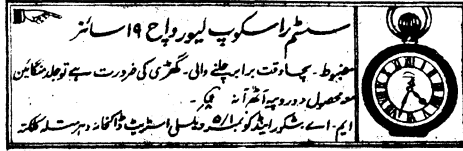 سسٹم راسکوپ لیور واچ ۱۹ سائز
مضبوط۔ سچا وقت برابر چلنے والی۔ گھڑی کی ضرورت ہے تو جلد منگائیں
مو محصول دو روپیہ آٹھ آنہ
ایم۔ اے شکور اینڈ کو نمبر ۵/۱ ویلسلی اسٹریٹ ڈاکخانہ دہرمتلہ کلکتہ